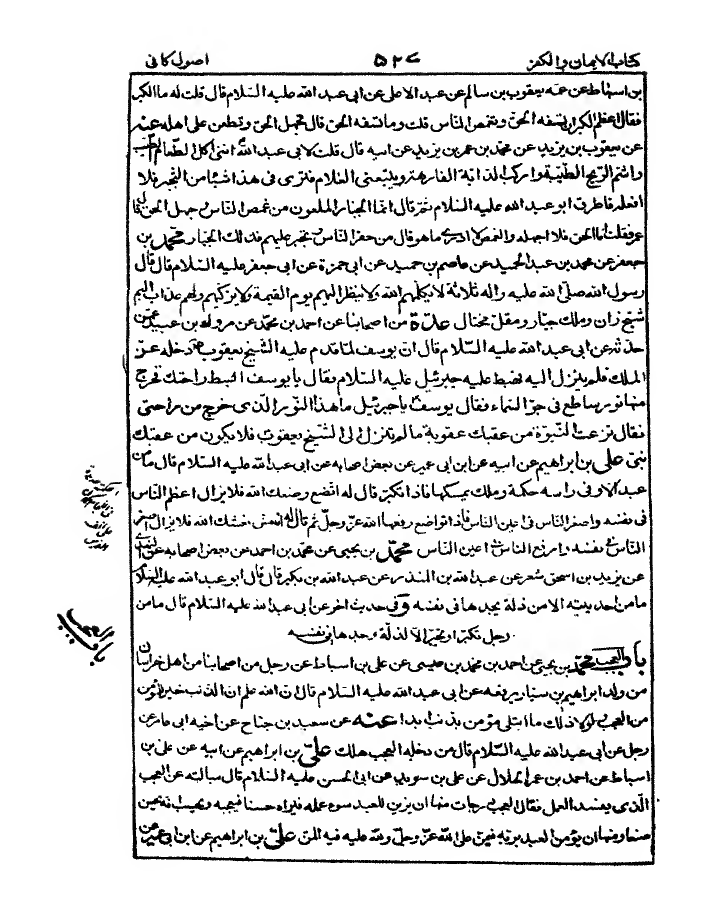 كتاب الايمان والكفر ٥٢٧ اصول كافى
بن اسباط عن عمه يعقوب بن سالم عن عبد الاعلى عن ابى عبد الله عليه السلام قال قلت له ما الكبر
فقال اعظم الكبر ان تسفه الحق وتغمص الناس قلت وما تسفه الحق قال تجهل الحق وتطعن على اهله عنه
عن يعقوب بن يزيد عن محمد بن عمر بن يزيد عن ابيه قال قلت لابى عبد الله اننى اكل الطعام الطيب
واشم الريح الطيبة واركب الدابة الفارهة ويتبعنى الغلام فترى فى هذا شيئا من التجبر فلا
افعله فاطرق ابو عبد الله عليه السلام ثم قال انما الجبار الملعون من غمص الناس وجهل الحق قال
عمر فقلت اما الحق فلا اجهله والغمص لا ادرى ما هو قال من حقر الناس وتجبر عليهم فذلك الجبار محمد بن
جعفر عن محمد بن عبد الحميد عن عاصم بن حميد عن ابى حمزة عن ابى جعفر عليه السلام قال قال
رسول الله صلى الله عليه واله ثلاثة لا يكلمهم الله ولا ينظر اليهم يوم القيمة ولا يزكيهم ولهم عذاب اليم
شيخ زان وملك جبار ومقل مختال عدة من اصحابنا عن احمد بن محمد عن مروك بن عبيد عمن
حدثه عن ابى عبد الله عليه السلام قال ان يوسف لما قدم عليه الشيخ يعقوب دخله عز
الملك فلم ينزل اليه فهبط عليه جبرئيل عليه السلام فقال يا يوسف ابسط راحتك فخرج
منها نور ساطع فى جو السماء فقال يوسف يا جبرئيل ما هذا النور الذى خرج من راحتى
فقال نزعت النبوة من عقبك عقوبة ما لم تنزل الى الشيخ يعقوب فلا يكون من عقبك
نبى على بن ابراهيم عن ابيه عن ابن ابى عمير عن بعض اصحابه عن ابى عبد الله عليه السلام قال ما من
عبد الا وفى راسه حكمة وملك يمسكها فاذا تكبر قال له اتضع وضعك الله فلا يزال اعظم الناس
فى نفسه واصغر الناس فى اعين الناس فاذا تواضع رفعها الله عز وجل ثم قال له انتعش نعشك الله فلا يزال اصغر
الناس فى نفسه وارفع الناس فى اعين الناس محمد بن يحيى عن محمد بن احمد عن بعض اصحابه عن النهدى
عن يزيد بن اسحق شعر عن عبد الله بن المنذر عن عبد الله بن بكير قال قال ابو عبد الله عليه السلام
ما من احد يتيه الا من ذلة يجدها فى نفسه وفى حديث اخر عن ابى عبد الله عليه السلام قال ما من
رجل تكبر او تجبر الا لذلة وجدها فى نفسه
باب العجب محمد بن يحيى عن احمد بن محمد بن عيسى عن على بن اسباط عن رجل من اصحابنا من اهل خراسان
من ولد ابراهيم بن سيار يرفعه عن ابى عبد الله عليه السلام قال ان الله علم ان الذنب خير للمؤمن
من العجب ولولا ذلك ما ابتلى مؤمن بذنب ابدا عنه عن سعيد بن جناح عن اخيه ابى عامر عن
رجل عن ابى عبد الله عليه السلام قال من دخله العجب هلك على بن ابراهيم عن ابيه عن على بن
اسباط عن احمد بن عمر الحلال عن على بن سويد عن ابى الحسن عليه السلام قال سالته عن العجب
الذى يفسد العمل فقال العجب درجات منها ان يزين للعبد سوء عمله فيراه حسنا فيعجبه ويحسب انه يحسن
صنعا ومنها ان يؤمن العبد بربه فيمن على الله عز وجل ولله عليه فيه المن على بن ابراهيم عن ابن ابى عمير عن
باب العجب